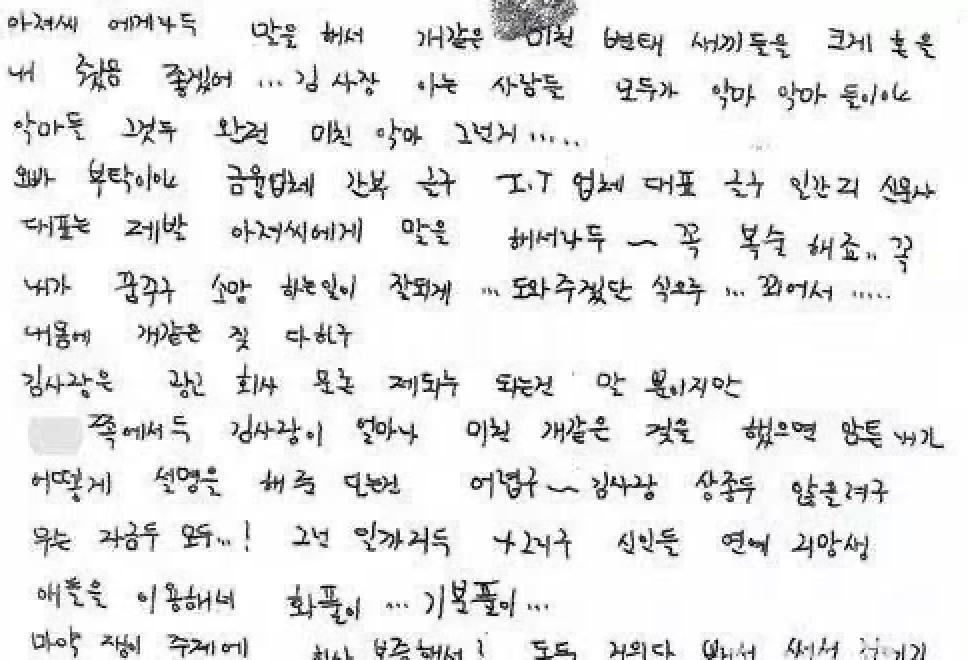 아저씨 에게나득 말을 해서 개같은 미친 변태 새끼들을 크게 혼을
내 줬음 좋겠어 ... 김 사장 아는 사람들 모두가 악마 악마 들이야
악마들 그것두 완전 미친 악마 그런거 .....
오빠 부탁이야 금융업체 간부 글구 I.T 업체 대표 글구 일간지 신문사
대표는 제발 아저씨에게 말을 해서나두 ~ 꼭 복수 해죠.. 꼭
내가 꿈꾸구 소망 하는일이 잘되게 ... 도와주겠단 식으루 ... 꾀어서 .....
내몸에 개같은 짓 다하구
김사장은 광고 회사 모론 제의두 되는건 말 뿐이지만
쪽에서두 김사장이 얼마나 미친 개같은 짓을 했으면 암튼 내가
어떻게 설명을 해 준 단는건 어렵구 ~ 김사장 상종두 않을려구
우는 자금두 모두..! 그런 일까지득 그리구 신인들 연예 지망생
애들을 이용해서 화풀이 ... 기분풀이 ...
마약 쟁이 주제에 회사 보증해서! 도득 거의다